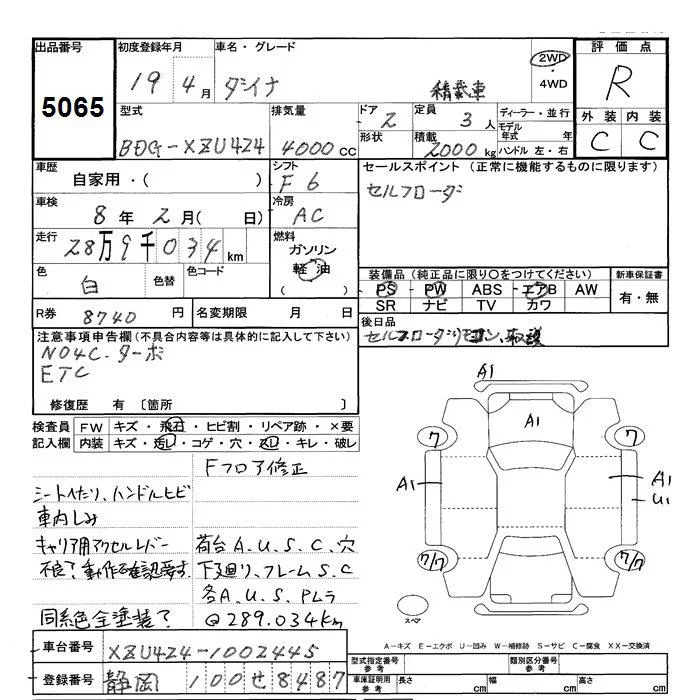 出品番号 初度登録年月 車名・グレード 2WD・4WD 評価点
5065 19年 4月 ダイナ 積載車 R
型式 排気量 ドア 定員 ディーラー・並行 外装 内装
BDG-XZU424 4000cc 2 3人 モデル年式 年 C C
形状 積載 2000kg ハンドル 左・右
車歴 シフト セールスポイント(正常に機能するものに限ります)
自家用・( ) F6 セルフローダ
車検 冷房
8年2月( 日) AC
走行 燃料
28万9千034km ガソリン
軽油
色 色替 色コード 装備品(純正品に限り○をつけてください) 新車保証書
白 ( ) PS PW ABS エアB AW 有・無
SR ナビ TV カワ
R券 8740円 名変期限 月 日
後日品
注意事項申告欄(不具合内容等は具体的に記入して下さい) セルフローダリモコン、取説
N04C.ターボ
ETC
修復歴 有〔箇所 〕
検査員 FW キズ・飛石・ヒビ割・リペア跡・×要
記入欄 内装 キズ・汚レ・コゲ・穴・スレ・キレ・破レ
Fフロア修正
シートへたり、ハンドルヒビ
車内しみ
キャリア用アクセルレバー 荷台A.U.S.C.穴
不良?動作確認要す. 下廻り、フレームS.C
各A.U.S.Pムラ
同系色全塗装? @289.034km
A1
A1
7 7
A1 A1
U1
7/7 7/7
スペア
A-キズ E-エクボ U-凹み W-補修跡 S-サビ C-腐食 XX-交換済
車台番号 XZU424-1002445 型式指定番号 参考 類別区分番号 参考
登録番号 静岡 100せ8487 車庫証明用 参考 長さ cm 幅 cm 高さ cm